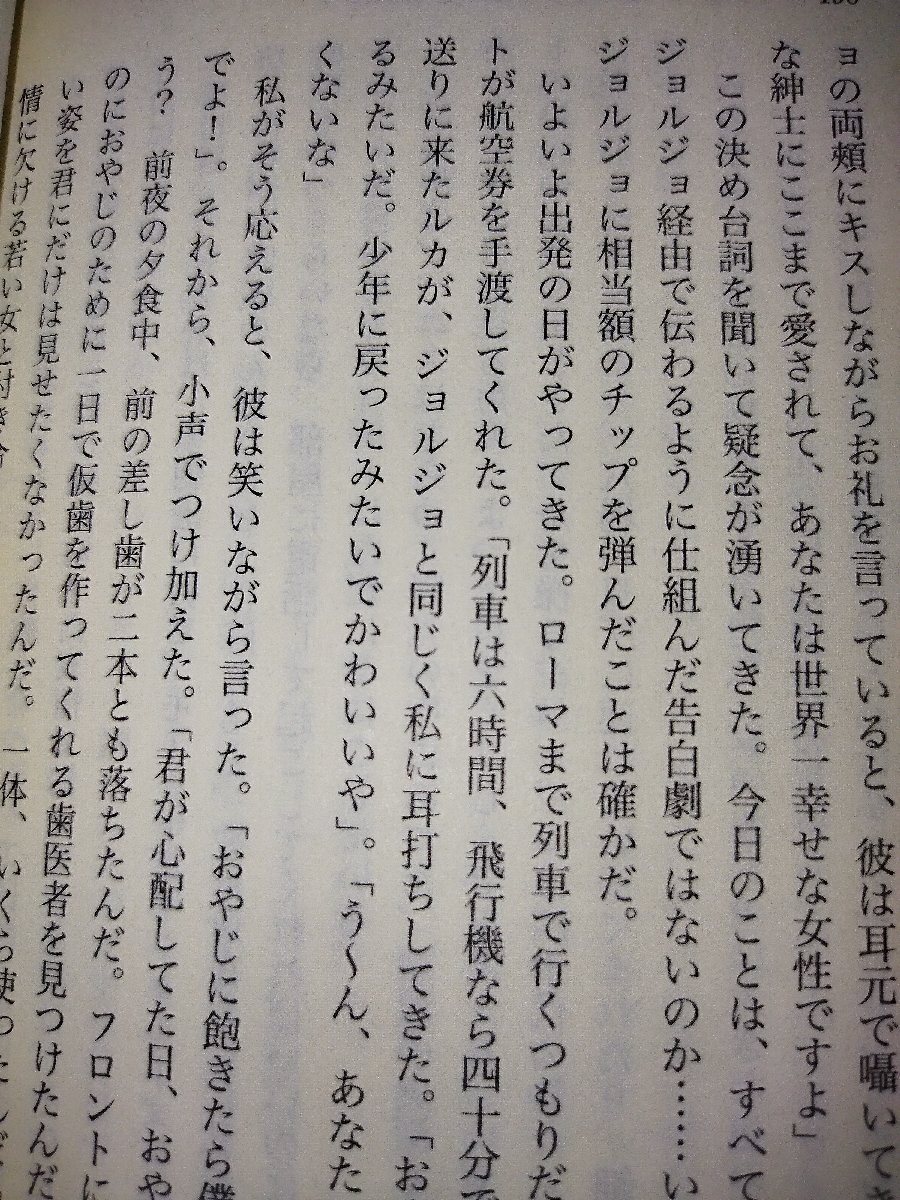 190
ョの両頰にキスしながらお礼を言っていると、彼は耳元で囁いてき
な紳士にここまで愛されて、あなたは世界一幸せな女性ですよ」
この決め台詞を聞いて疑念が湧いてきた。今日のことは、すべて
ジョルジョ経由で伝わるように仕組んだ告白劇ではないのか……い
ジョルジョに相当額のチップを弾んだことは確かだ。
いよいよ出発の日がやってきた。ローマまで列車で行くつもりだ
トが航空券を手渡してくれた。「列車は六時間、飛行機なら四十分で
送りに来たルカが、ジョルジョと同じく私に耳打ちしてきた。「お
るみたいだ。少年に戻ったみたいでかわいいや」。「う〜ん、あなた
くないな」
私がそう応えると、彼は笑いながら言った。「おやじに飽きたら僕
でよ！」。それから、小声でつけ加えた。「君が心配してた日、おや
う？　前夜の夕食中、前の差し歯が二本とも落ちたんだ。フロントに
のにおやじのために一日で仮歯を作ってくれる歯医者を見つけたんだ
い姿を君にだけは見せたくなかったんだ。一体、いくら使ったんだ
情に欠ける若い女と付き合